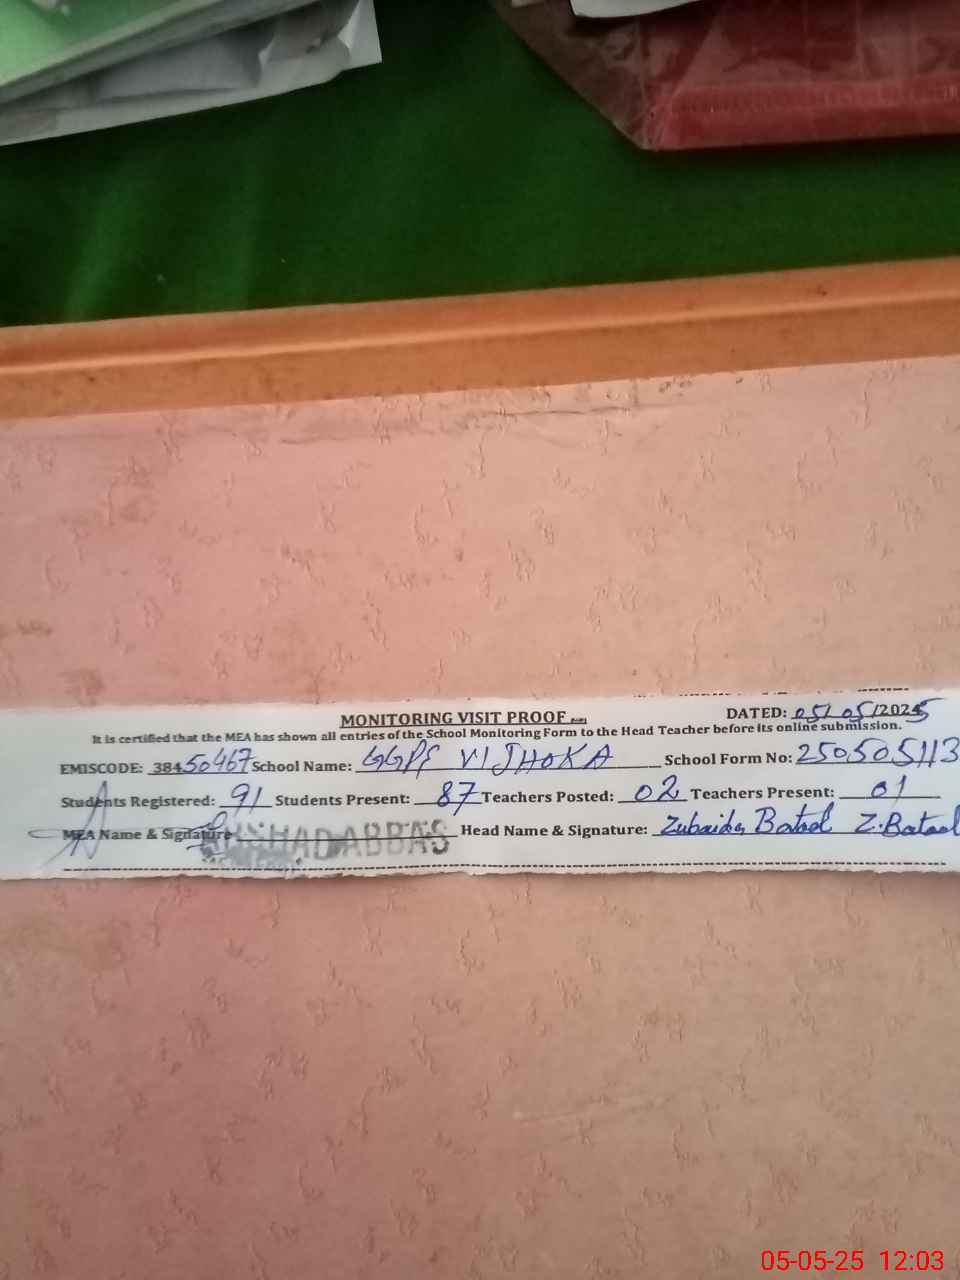 MONITORING VISIT PROOF
DATED: 05/05/2025
It is certified that the MEA has shown all entries of the School Monitoring Form to the Head Teacher before its online submission.
EMISCODE: 38450467 School Name: GGPS VIJHOKA School Form No: 250505113
Students Registered: 91 Students Present: 87 Teachers Posted: 02 Teachers Present: 01
MEA Name & Signature ARSHAD ABBAS Head Name & Signature: Zubaida Batool Z.Batool
05-05-25 12:03